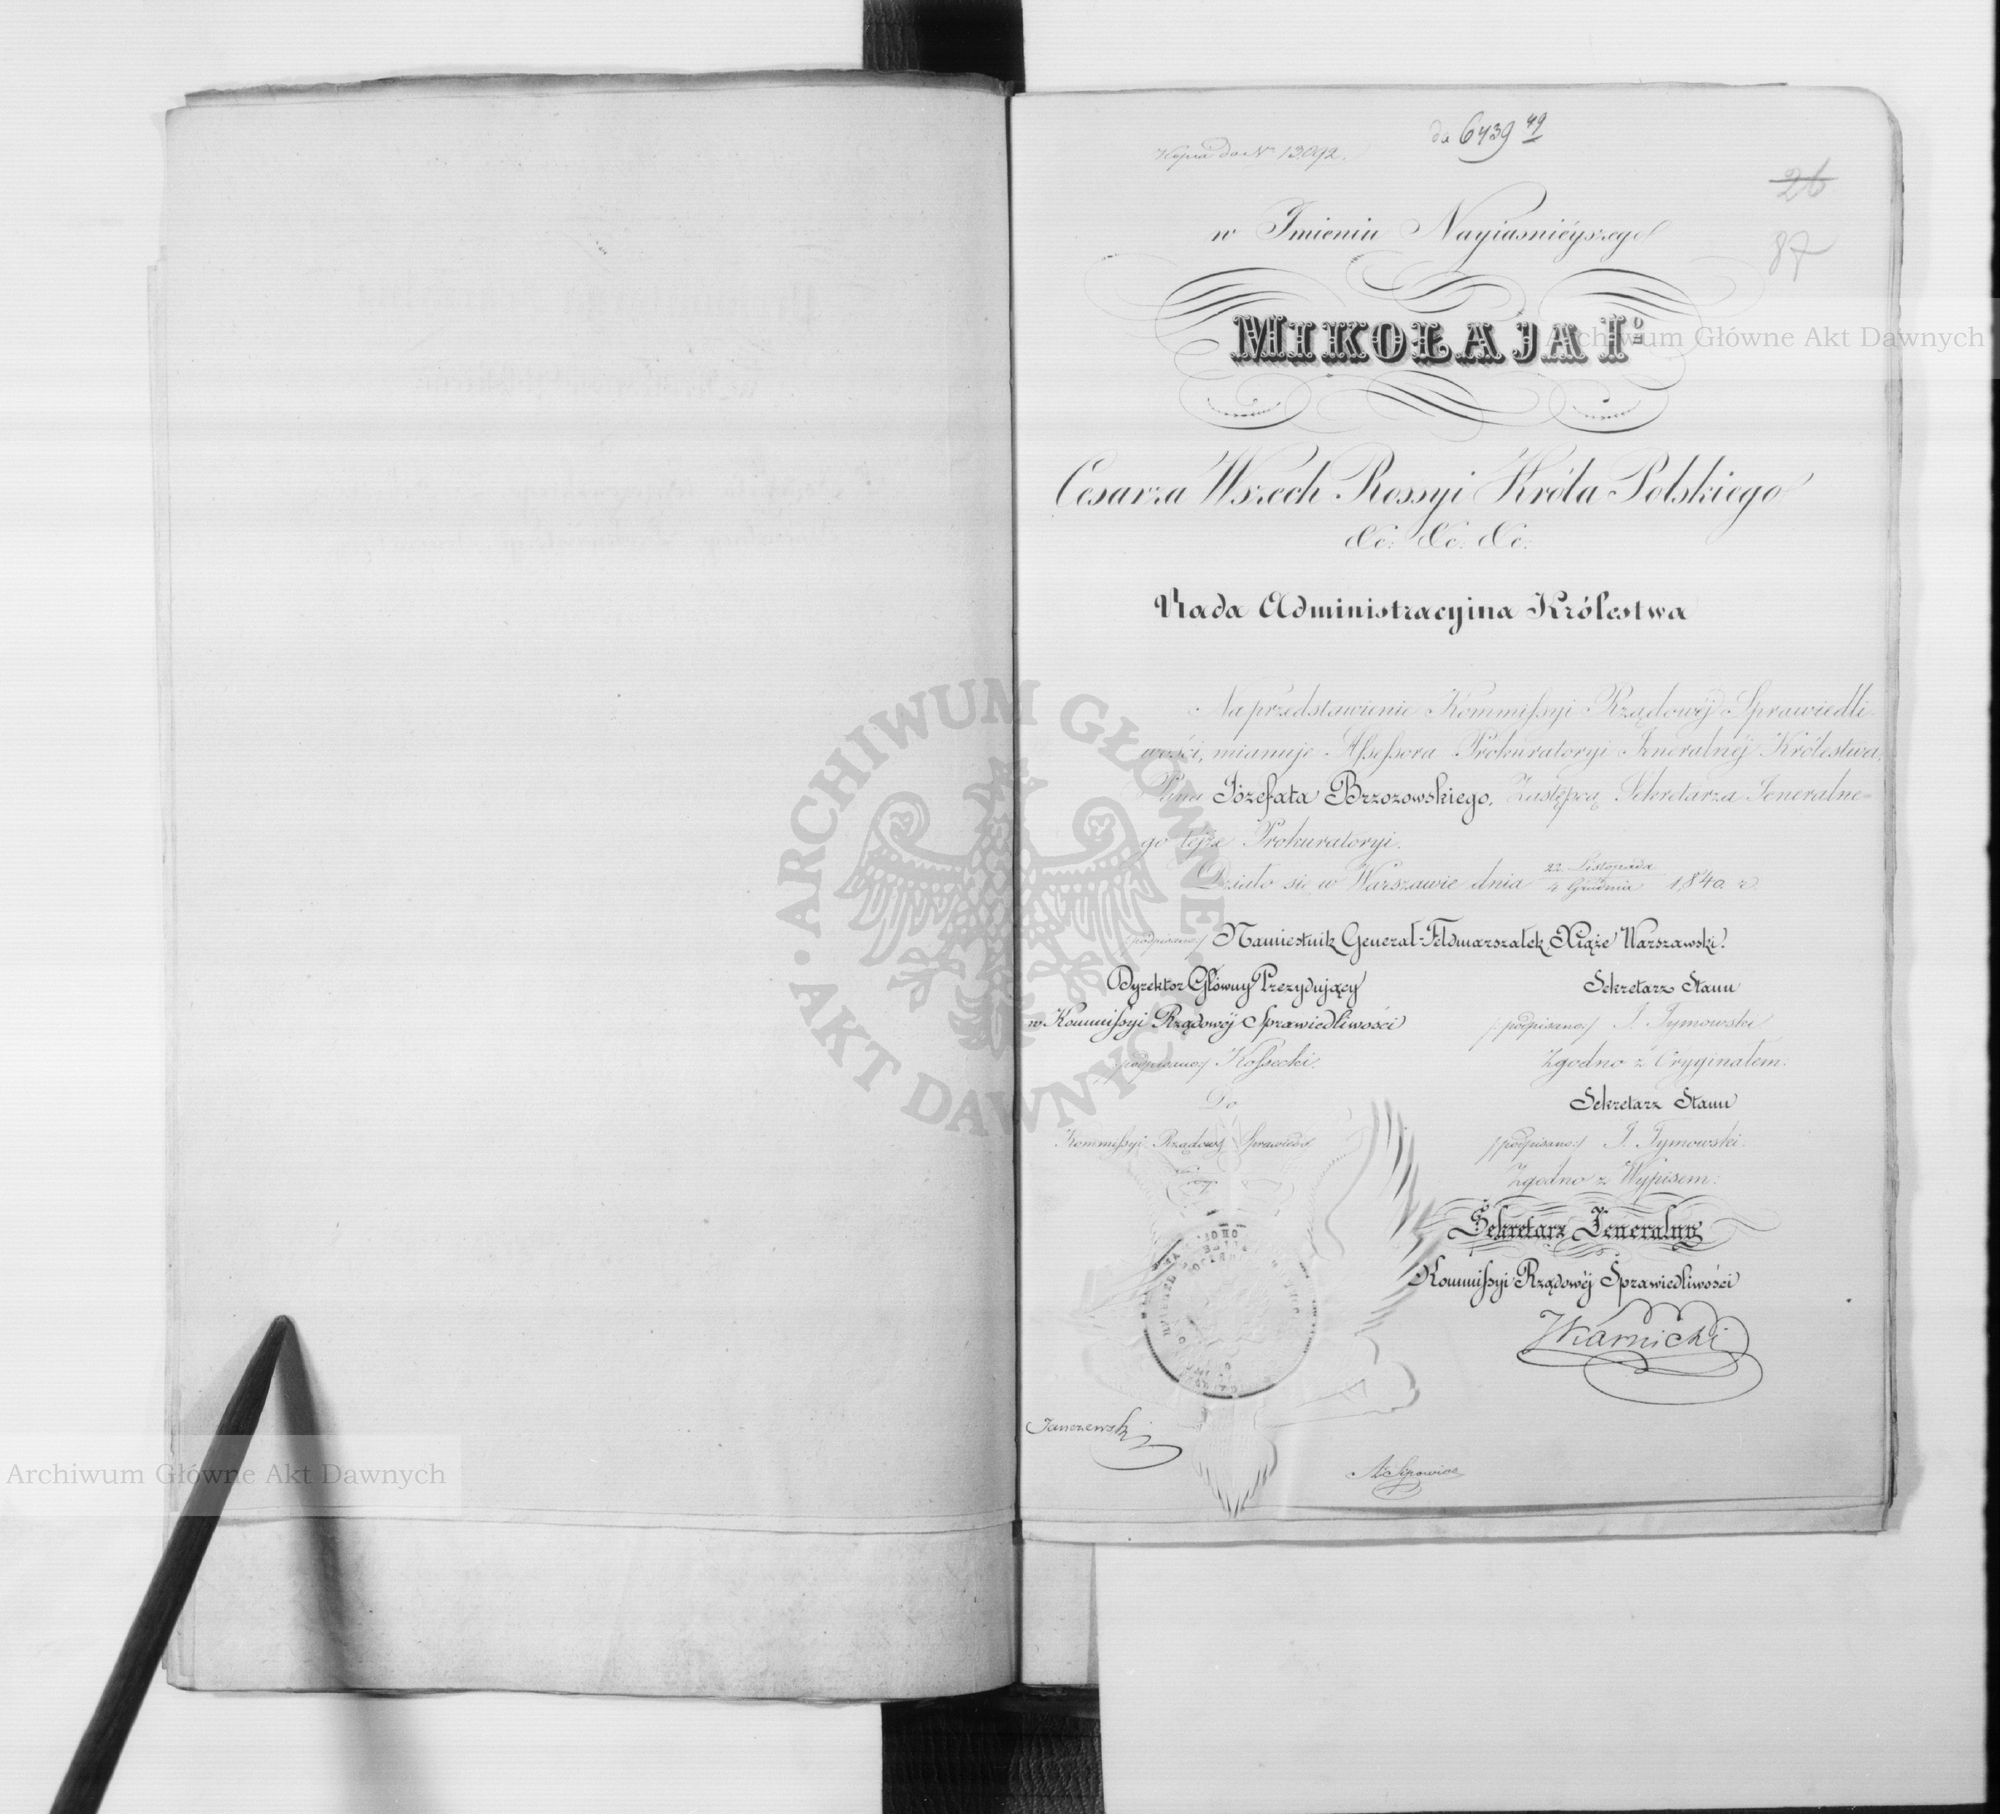 do 6439 49
Kopia do Nr 13092.
26
87
w Imieniu Nayiasnieyszego
MIKOŁAJA Igo
Cesarza Wszech Rossyi Króla Polskiego
&c: &c: &c:
Rada Administracyina Królestwa
Na przedstawienie Kommissyi Rządowéj Sprawiedli-
wości, mianuje Assessora Prokuratoryi Jeneralnéj Królestwa,
Pana Józefata Brzozowskiego, Zastępcą Sekretarza Jeneralne-
go tejże Prokuratoryi.
Działo się w Warszawie dnia 22 Listopada / 4 Grudnia 1840 r.
/podpisano:/ Namiestnik Generał-Feldmarszałek, Xiąże Warszawski.
Dyrektor Główny Prezydujący
w Kommissyi Rządowéj Sprawiedliwości
/podpisano:/ Kossecki.
Sekretarz Stanu
/:podpisano:/ J. Tymowski
Zgodno z Oryginałem:
Sekretarz Stanu
/:podpisano:/ J. Tymowski.
Zgodno z Wypisem:
Do
Kommissyi Rządowéj Sprawiedl
Sekretarz Jeneralny
Kommissyi Rządowéj Sprawiedliwości
JKarnicki
Janczewski
Archiwum Główne Akt Dawnych
ARCHIWUM GŁÓWNE
AKT DAWNYCH
Archiwum Główne Akt Dawnych